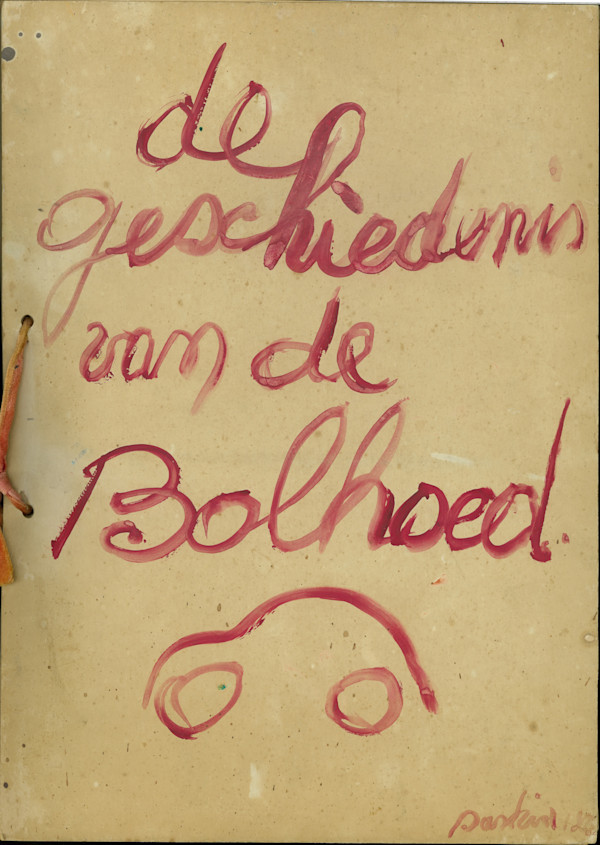 de
geschiedenis
van de
Bolhoed.